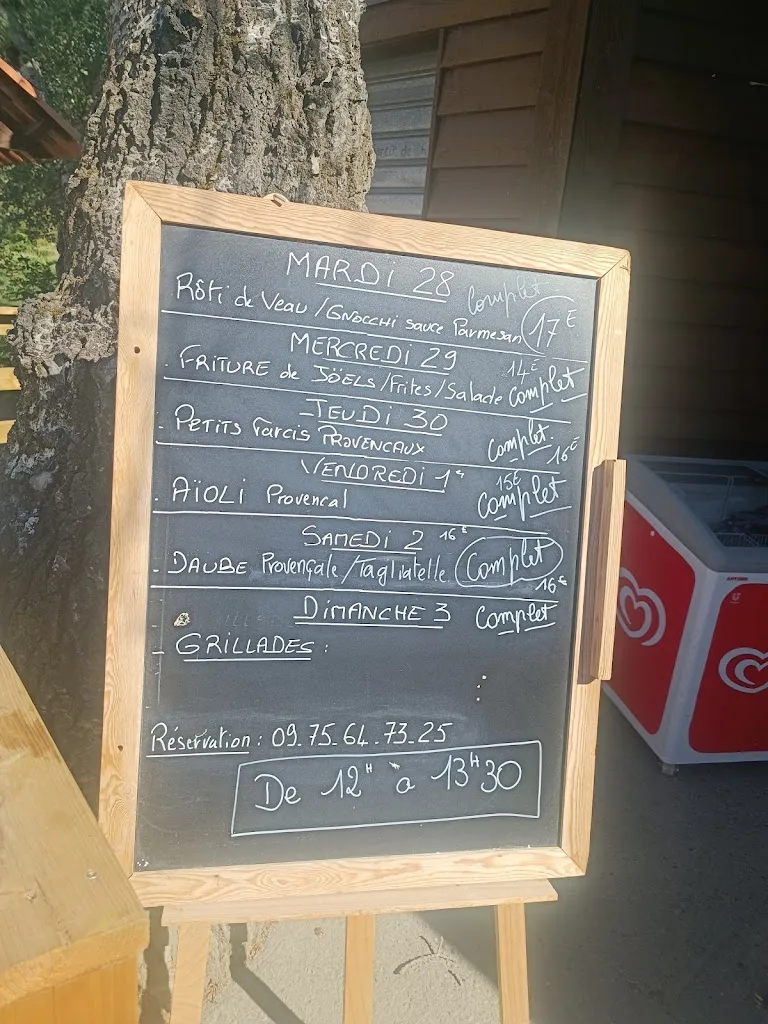 MARDI 28
complet
Rôti de Veau / GNOCCHI sauce Parmesan 17€
MERCREDI 29
14€
. FRITURE de JÖELS / Frites / Salade Complet
JEUDI 30
. PETITS Farcis PROVENCAUX Complet.
16€
VENDREDI 1er
15€
. AÏOLI Provencal Complet
SAMEDI 2 16€
- DAUBE Provençale / Tagliatelle Complet
16€
DIMANCHE 3 Complet
- GRILLADES :
Réservation : 09.75.64.73.25
De 12H à 13H30